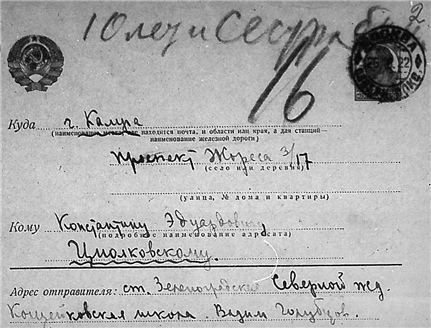 10 лет и Сестра
2
МОСКВА
16
Куда г. Калуга
(наименование места, где находится почта, и области или края, а для станций— наименование железной дороги)
проспект Жореса 3/17
(село или деревня)
(улица, № дома и квартиры)
Кому Константину Эдуардовичу
(подробное наименование адресата)
Циолковскому.
Адрес отправителя: ст. Зеленоградская Северной жд.
школа. Вадим Голубцов.